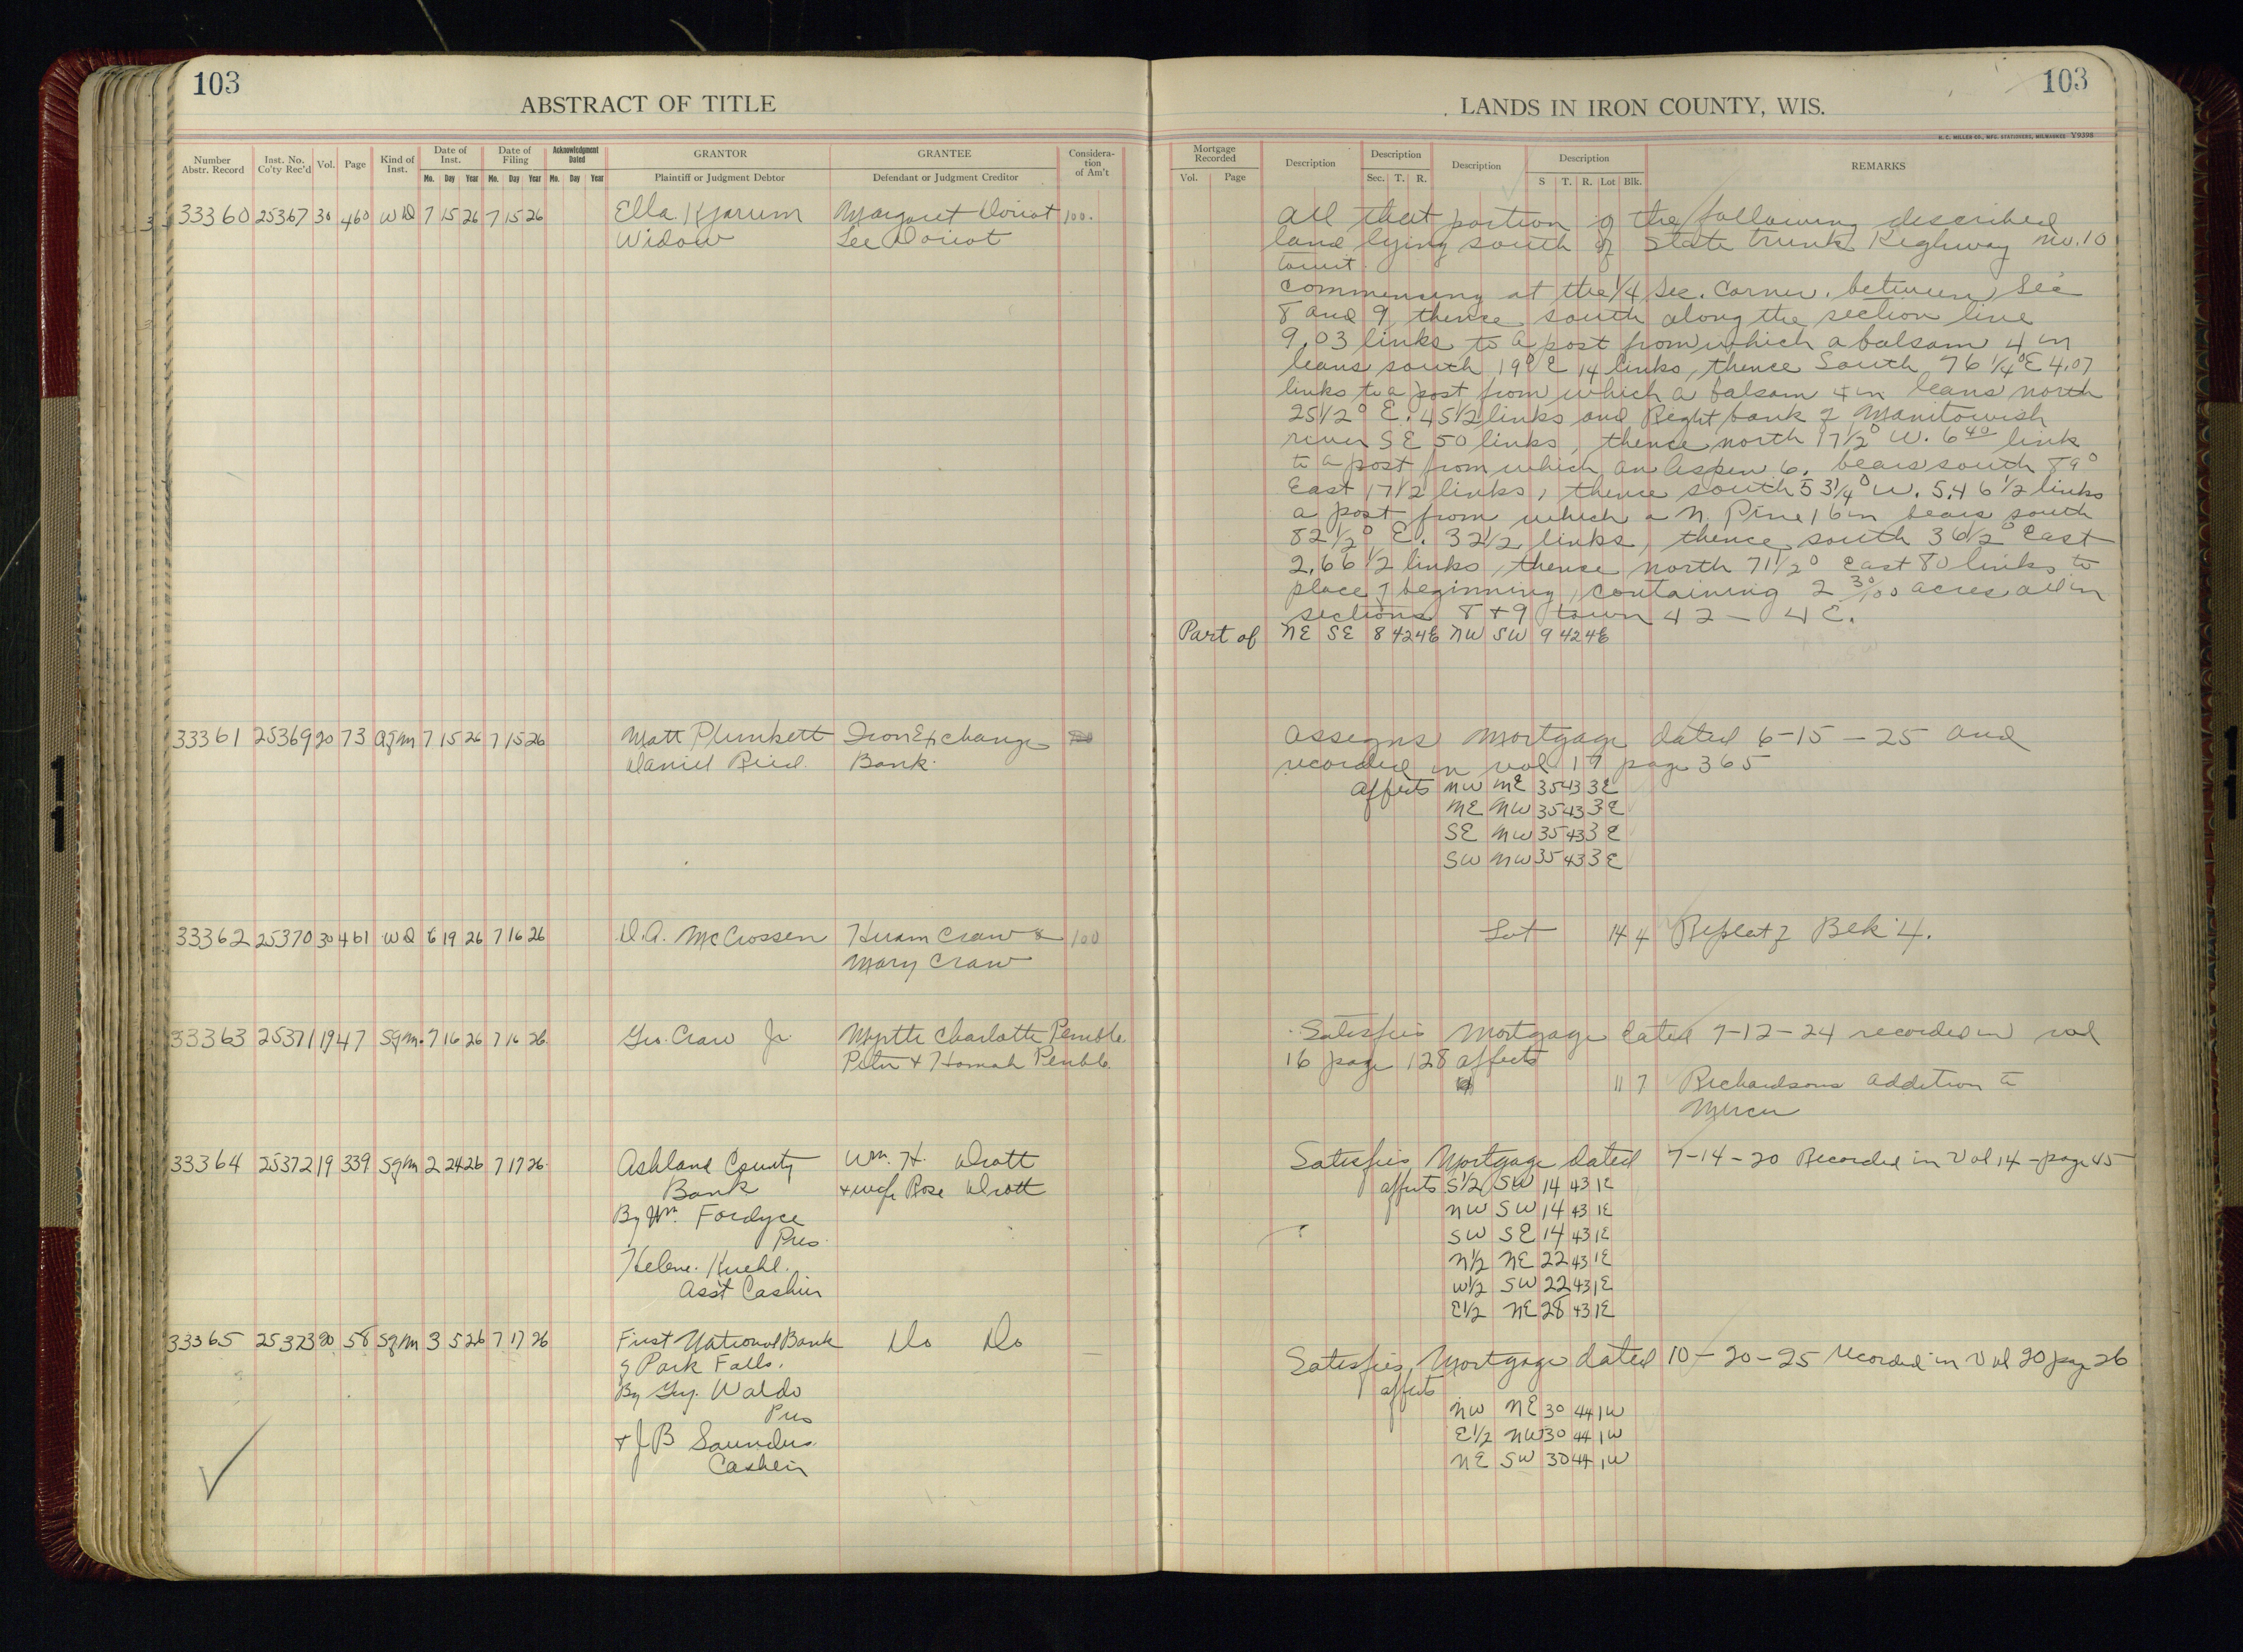 103
ABSTRACT OF TITLE
Number Abstr. Record
Inst. No. Co'ty Rec'd
Vol.
Page
Kind of Inst.
Date of Inst.
Mo. Day Year
Date of Filing
Mo. Day Year
Acknowledgment Dated
Mo. Day Year
GRANTOR
Plaintiff or Judgment Debtor
GRANTEE
Defendant or Judgment Creditor
Consideration of Am't
33360 25367 30 460 WD 7 15 26 7 15 26 Ella Kjarum Margaret Doriot 100.
Widow Lee Doriot
33361 25369 20 73 Agm 7 15 26 7 15 26 Matt Plunkett Iron Exchange
Daniel Reid. Bank.
33362 25370 30 461 WD 6 19 26 7 16 26 D.A. McCrossen Hiram Craw & 100
Mary Craw
33363 25371 19 47 Sgm. 7 16 26 7 16 26. Geo. Craw Jr. Myrtle Charlotte Pemble.
Peter + Hannah Pemble.
33364 25372 19 339 Sgm 2 24 26 7 17 26. Ashland County Wm. H. Dratt
Bank + wife Rose Dratt
By Wm. Fordyce
Pres.
Helene Kuehl.
Asst Cashier
33365 25373 20 58 Sgm 3 5 26 7 17 26 First National Bank Do Do
of Park Falls.
By Guy. Waldo
Pres
+ J B Saunders.
Cashier
103
LANDS IN IRON COUNTY, WIS.
H. C. MILLER CO., MFG. STATIONERS, MILWAUKEE Y9398
Mortgage Recorded
Vol. Page
Description
Description
Sec. T. R.
Description
Description
S T. R. Lot Blk.
REMARKS
All that portion of the following described
land lying south of State trunk Highway no. 10
towit.
Commencing at the 1/4 Sec. Corner. between Sec
8 and 9, thence south along the section line
9.03 links to a post from which a balsam 4 in
leans south 19° E 14 links, thence South 76 1/4° E 4.07
links to a post from which a balsam 4 in leans north
25 1/2° E. 45 1/2 links and Right bank of Manitowish
river SE 50 links, thence north 17 1/2° W. 6 40 link
to a post from which an Aspen 6. bears south 89°
East 17 1/2 links, thence south 53 1/4° W. 5.46 1/2 links
a post from which a N. Pine 16 in bears south
82 1/2° E. 32 1/2 links, thence south 36 1/2° East
2.66 1/2 links, thence north 71 1/2° East 80 links to
place of beginning, containing 2 30/100 acres all in
sections 8 + 9 town 42 - 4 E.
Part of NE SE 8 42 4E NW SW 9 42 4E
Assigns Mortgage dated 6-15-25 and
recorded in vol 19 page 365
affects NW NE 35 43 3E
NE NW 35 43 3E
SE NW 35 43 3E
SW NW 35 43 3E
Lot 14 4 Replat of Blk 4.
Satisfies Mortgage dated 7-12-24 recorded in vol
16 page 128 affects
11 7 Richardsons addition to
Mercer
Satisfies Mortgage dated 7-14-20 Recorded in Vol 14 - page 45
affects S1/2 SW 14 43 1E
NW SW 14 43 1E
SW SE 14 43 1E
N1/2 NE 22 43 1E
W1/2 SW 22 43 1E
E1/2 NE 28 43 1E
Satisfies Mortgage dated 10-20-25 recorded in Vol 20 page 26
affects
NW NE 30 44 1W
E1/2 NW 30 44 1W
NE SW 30 44 1W